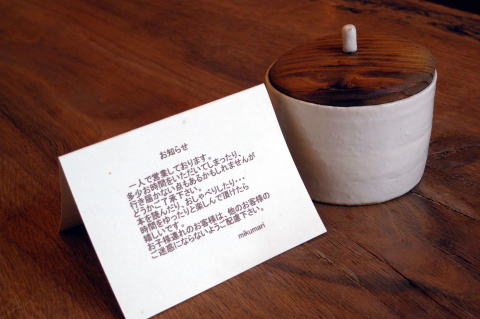 お知らせ
一人で営業しております。
多少お時間をいただいてしまったり、
行き届かない点もあるかもしれませんが
どうかご了承下さい。
本を読んだり、おしゃべりしたり・・・
時間をゆったりと楽しんで頂けたら
嬉しいです。
お子様連れのお客様は、他のお客様の
ご迷惑にならないようご配慮下さい。
mikumari